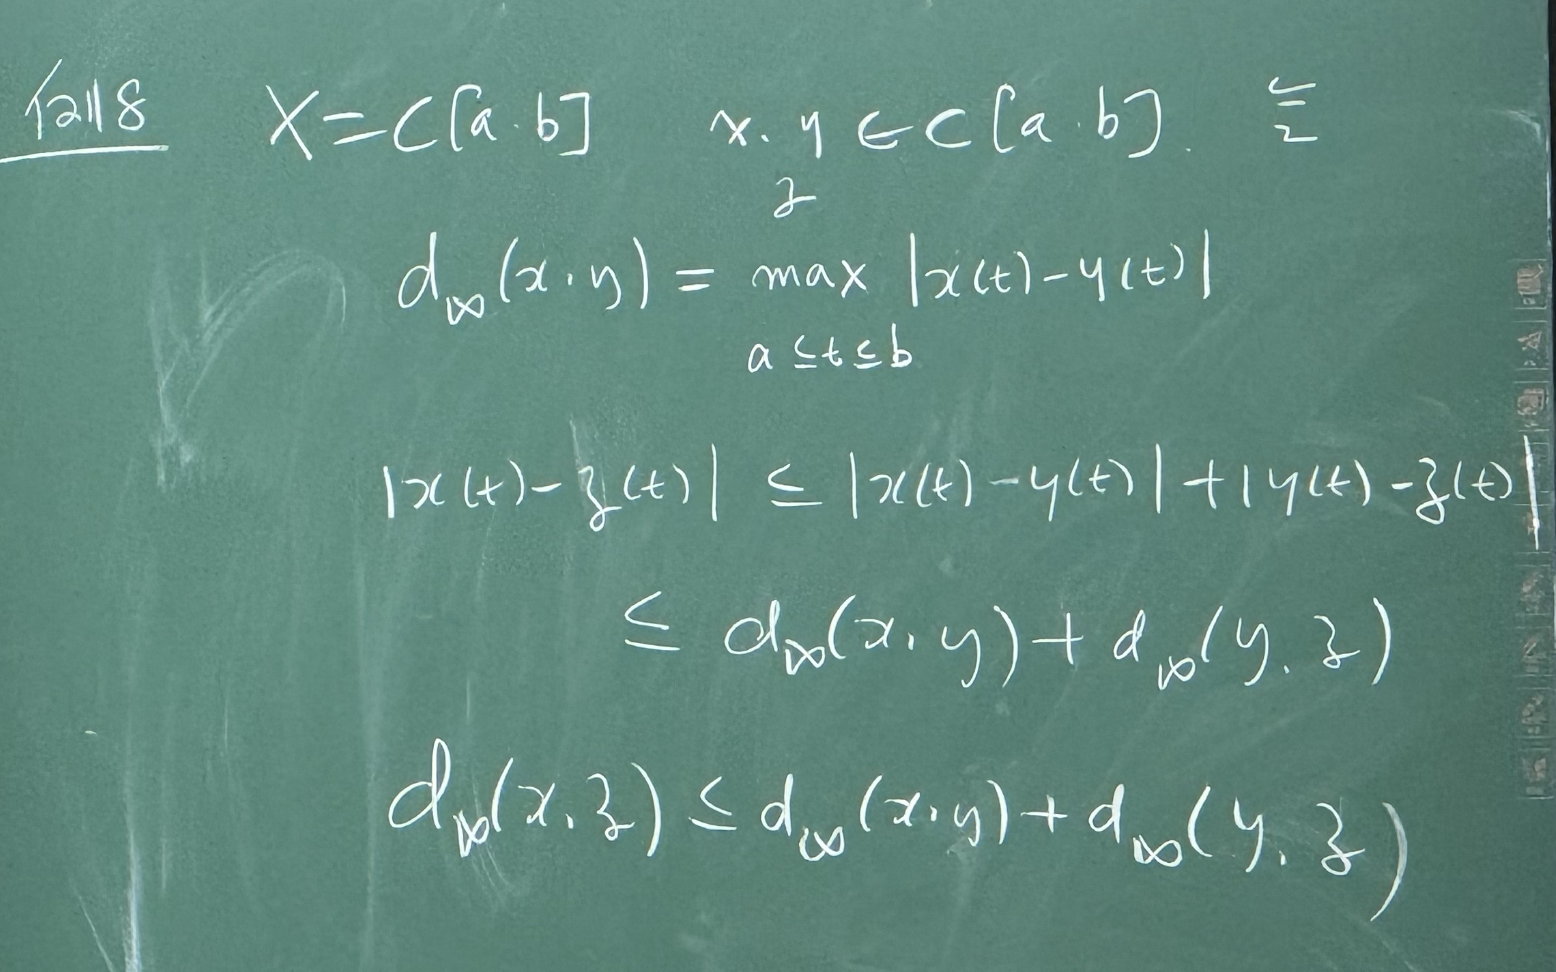 例8 X = C[a, b] x, y ∈ C[a, b].
z
d∞(x, y) = max |x(t) - y(t)|
a ≤ t ≤ b
|x(t) - z(t)| ≤ |x(t) - y(t)| + |y(t) - z(t)|
≤ d∞(x, y) + d∞(y, z)
d∞(x, z) ≤ d∞(x, y) + d∞(y, z)